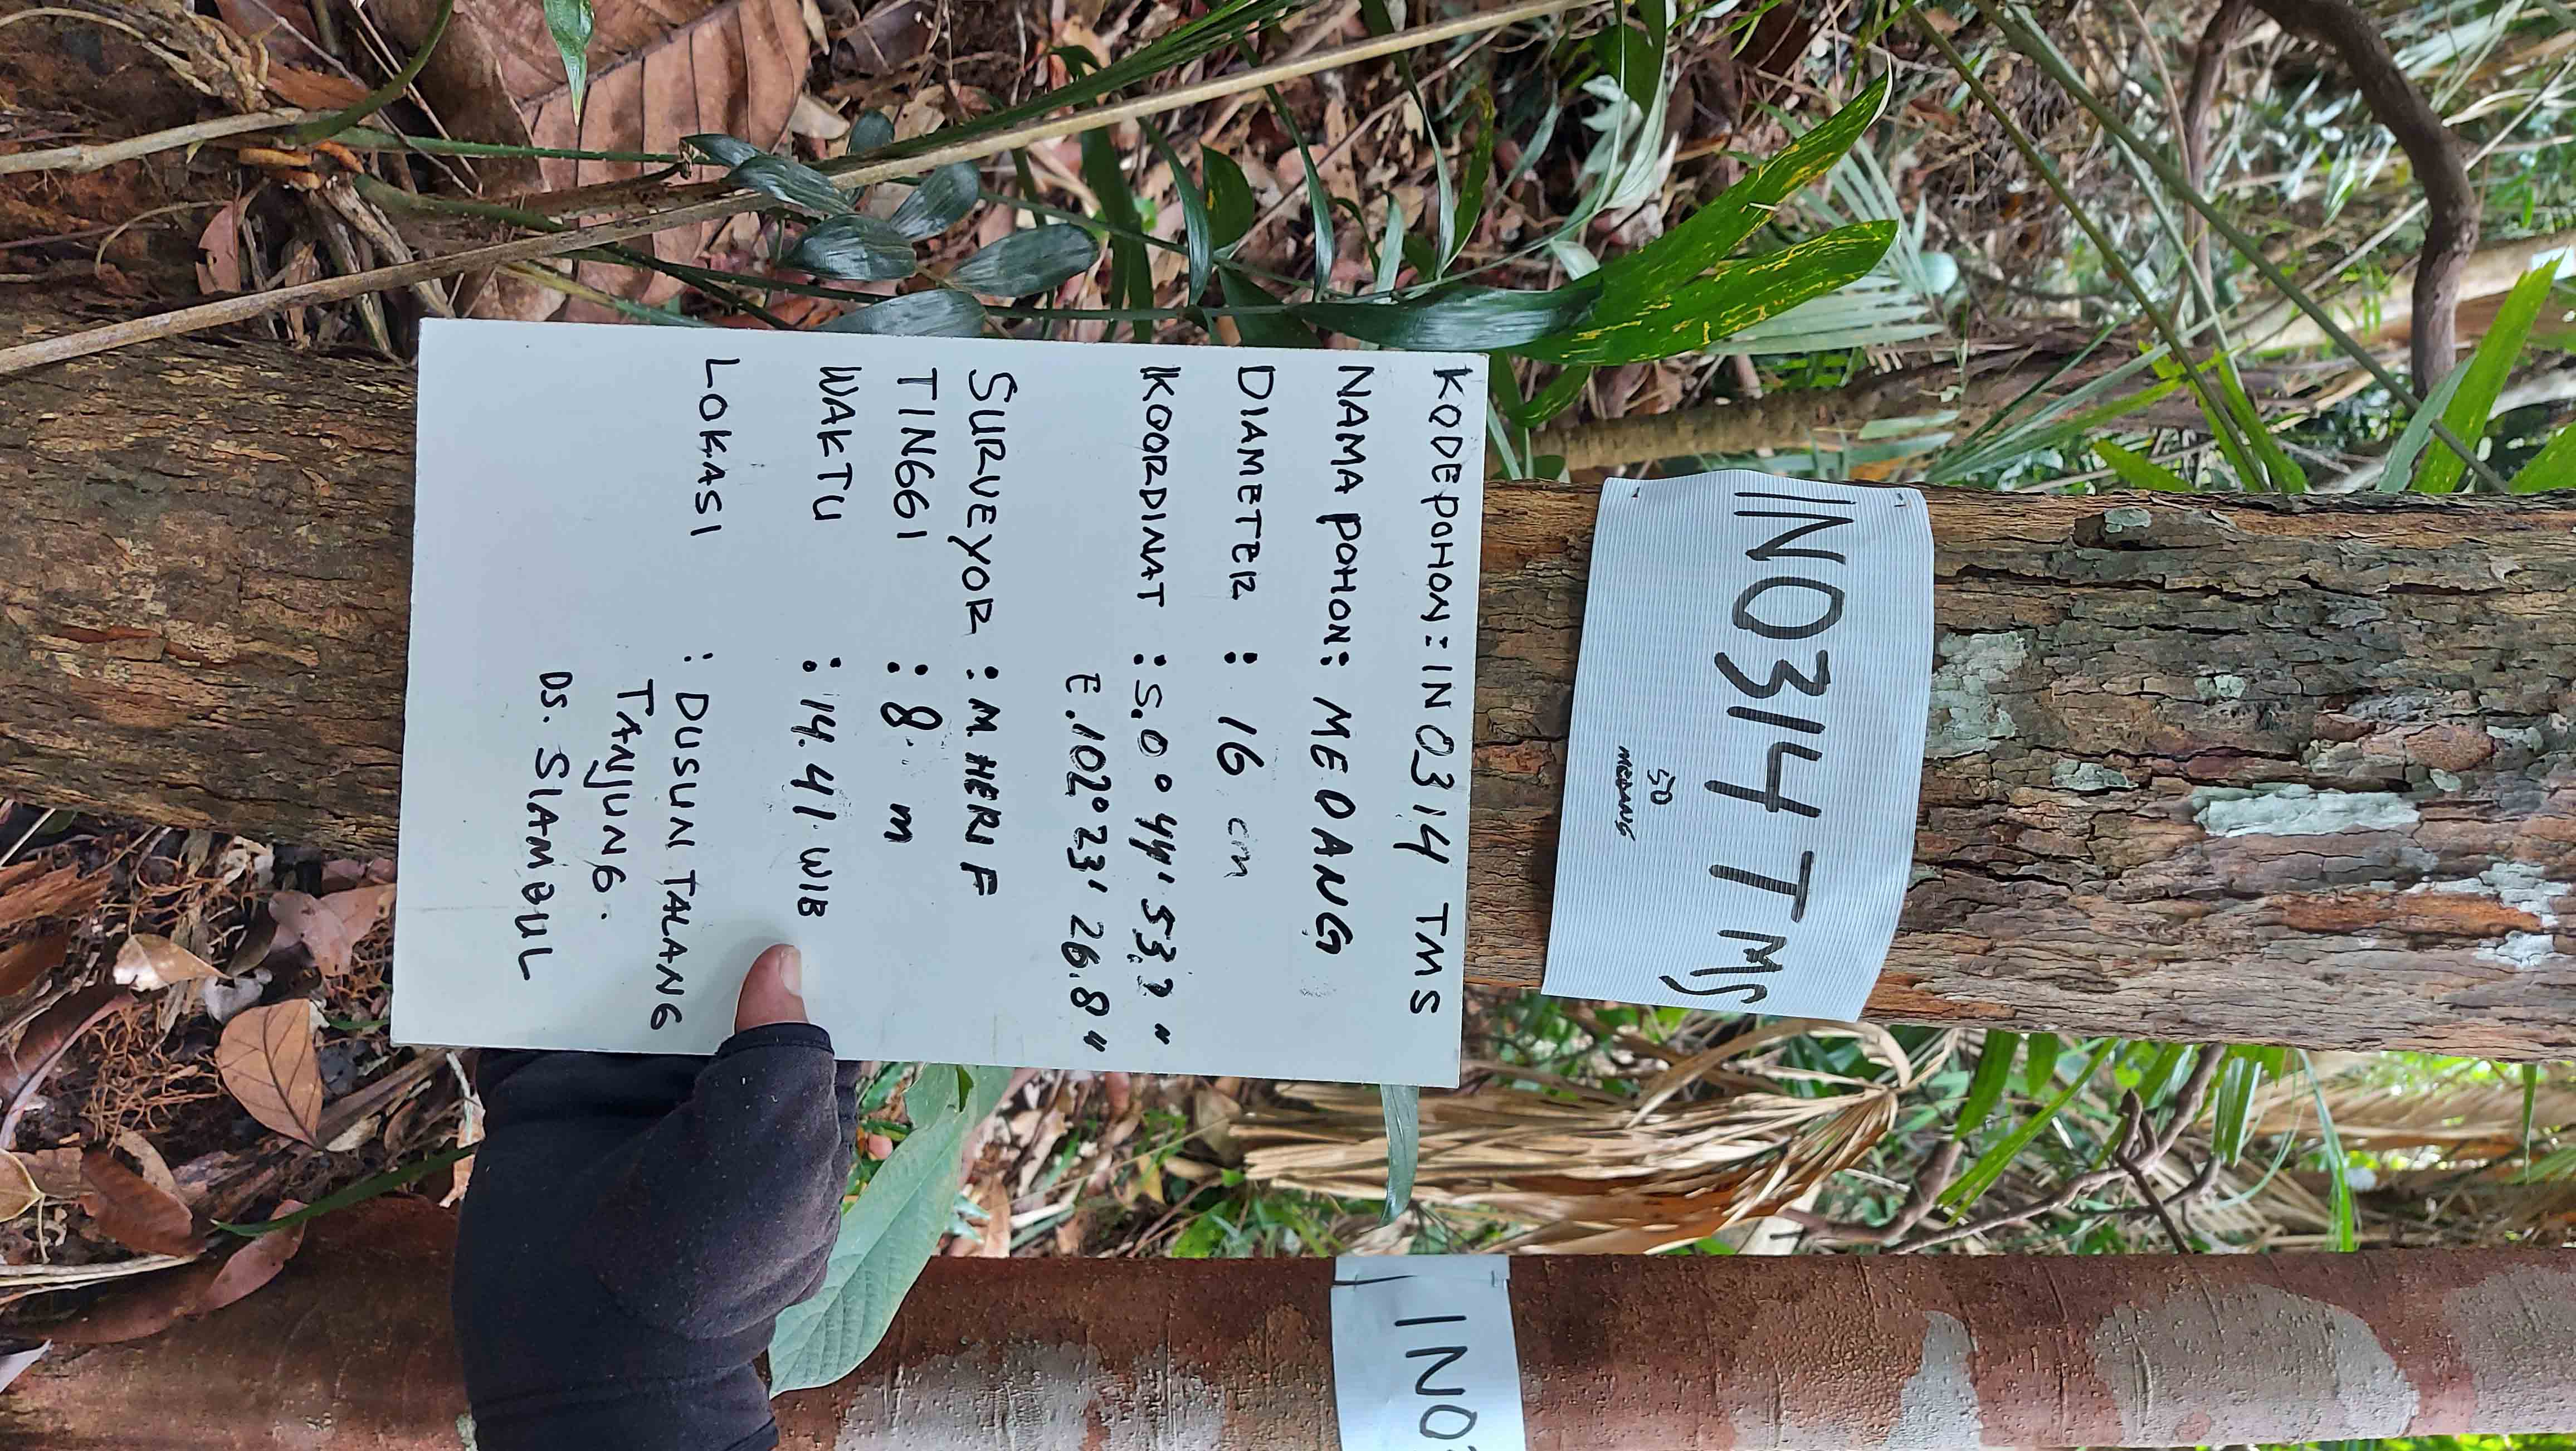 INO314 TMS
50
MEDANG
KODE POHON : INO314 TMS
NAMA POHON : MEDANG
DIAMETER : 16 cm
KOORDINAT : S.0° 44' 53.7 "
E.102° 23' 26.8 "
SURVEYOR : M. HERI F
TINGGI : 8 m
WAKTU : 14.41 WIB
LOKASI : DUSUN TALANG
TANJUNG.
DS. SIAMBUL
INO